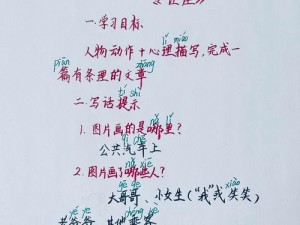 一.学习目标
lǐ miáo
人物动作+心理描写,完成一
piān zhāng
篇有条理的文章
tí shì
二.写话提示
nǎ lǐ
1.图片画的是哪里?
qì chē
公共汽车上
nǎ xiē
2.图片画了哪些人?
gē ge xiào
大哥哥、小女生("我"或笑笑)
yé ye
老爷爷、其他乘客